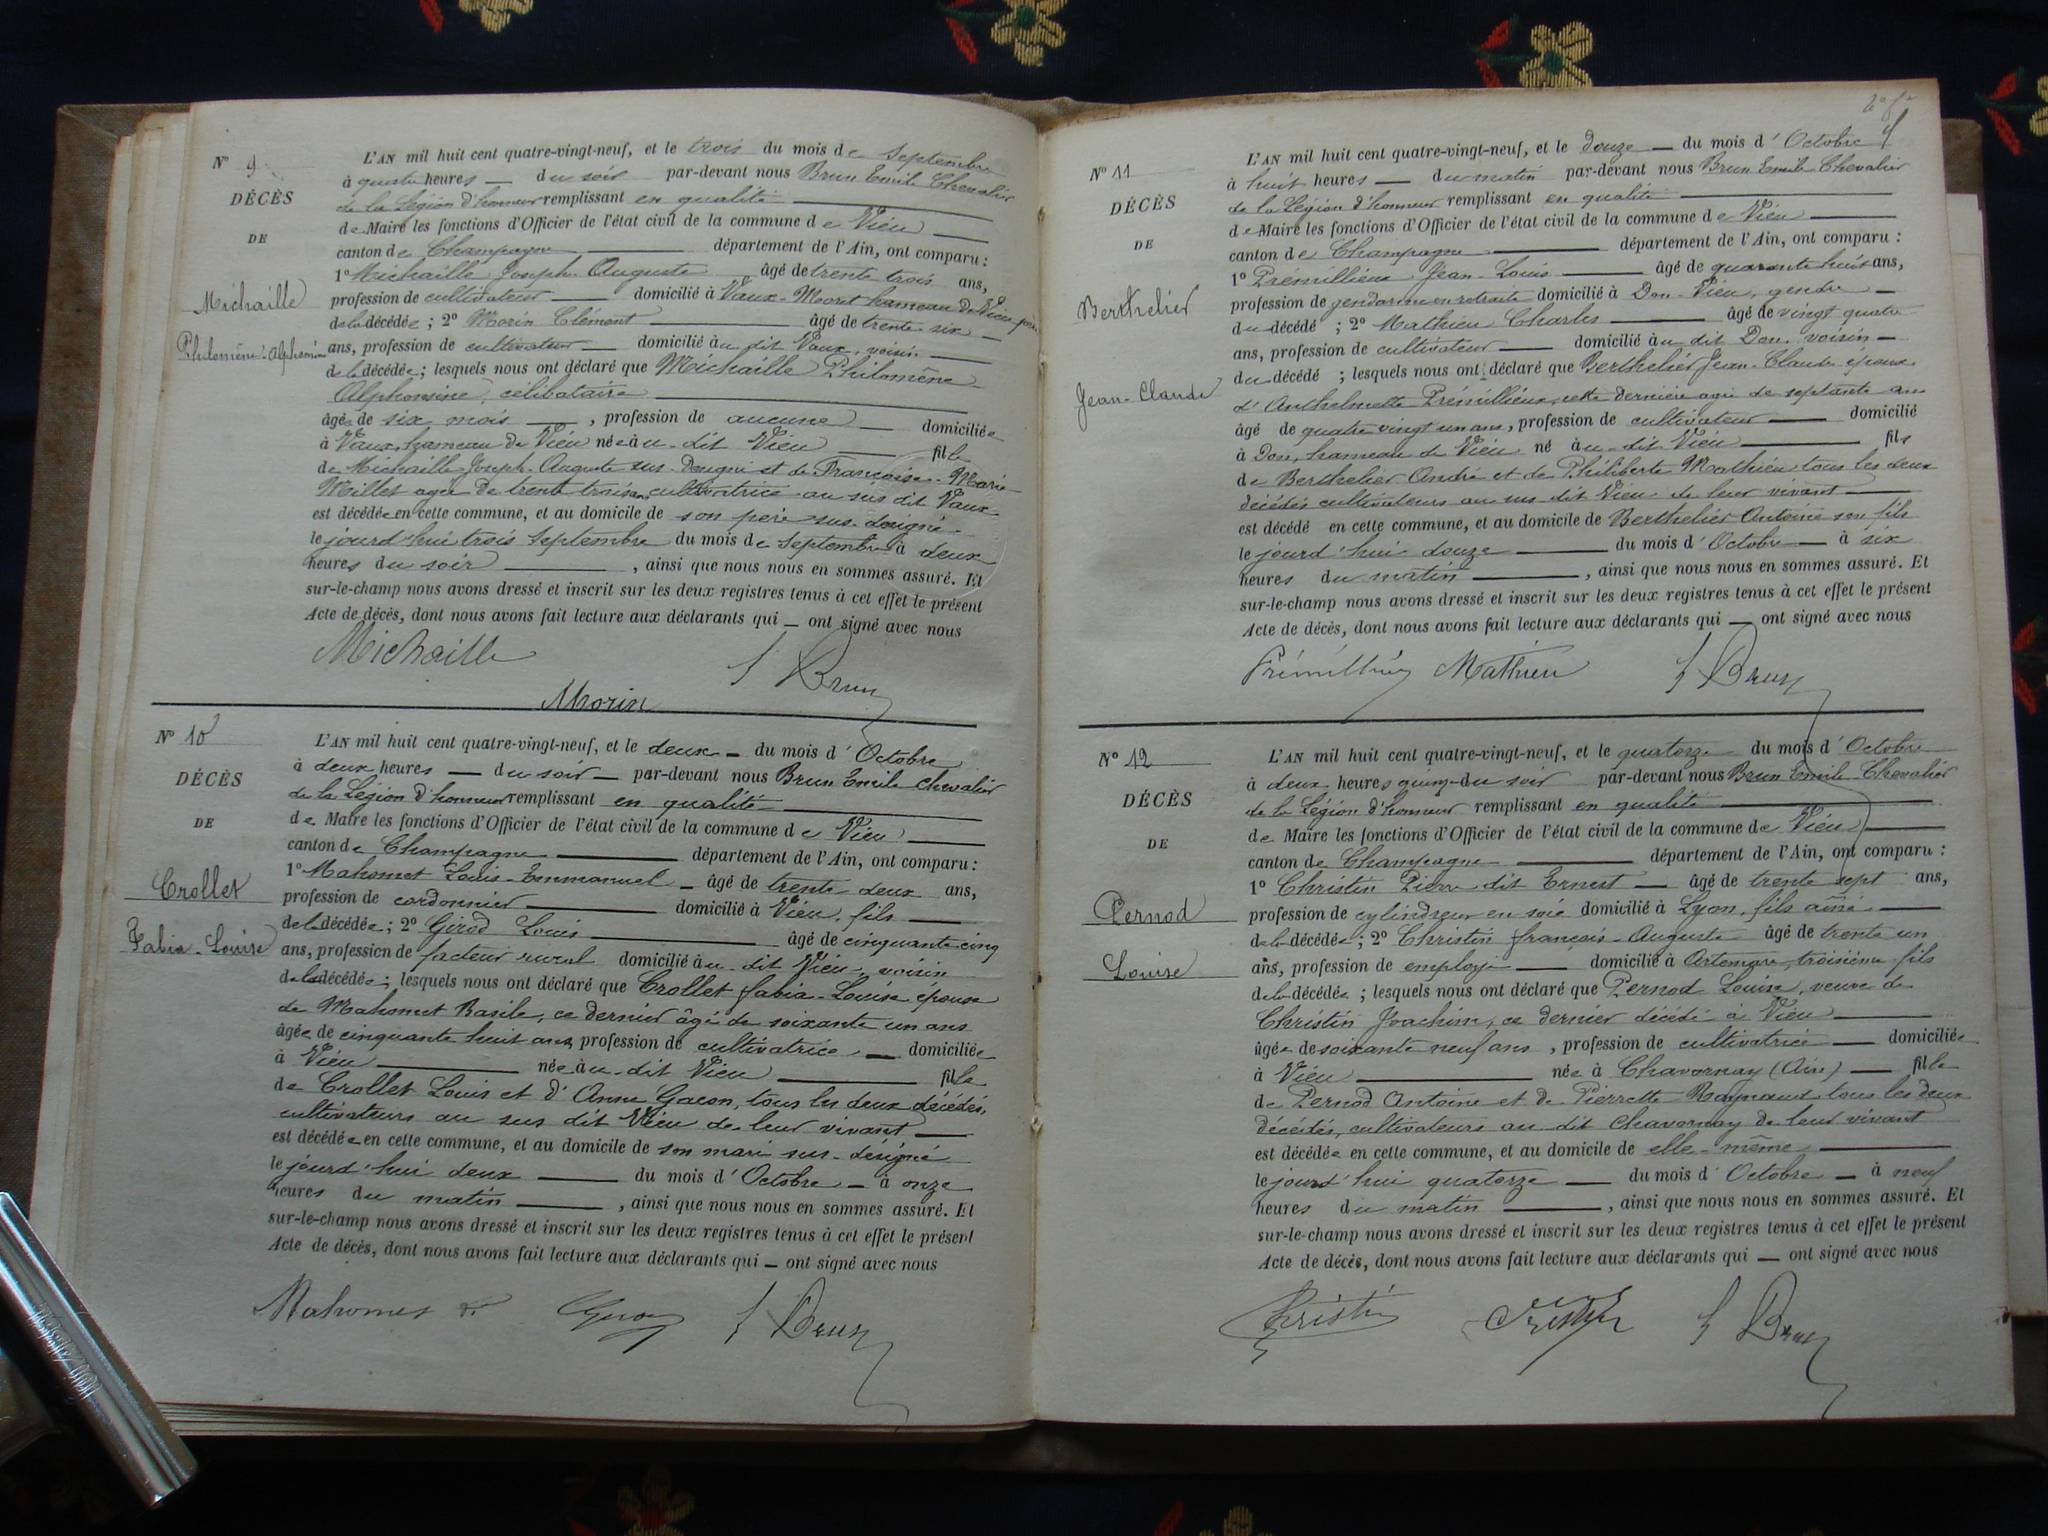 N° 9
DÉCÈS
DE
Michaille
Philomène-Alphonsine
L'AN mil huit cent quatre-vingt-neuf, et le trois du mois de Septembre
à quatre heures — du soir par-devant nous Brun Emile Chevalier
de la Légion d'honneur remplissant en qualité
de Maire les fonctions d'Officier de l'état civil de la commune de Vieu
canton de Champagne département de l'Ain, ont comparu :
1° Michaille Joseph Auguste âgé de trente trois ans,
profession de cultivateur domicilié à Vaux-Moret hameau de Vieu père
de la décédée ; 2° Morin Clément âgé de trente six
ans, profession de cultivateur domicilié au dit Vaux, voisin
de la décédée ; lesquels nous ont déclaré que Michaille Philomène
Alphonsine, célibataire
âgée de six mois , profession de aucune domiciliée
à Vaux, hameau de Vieu née au dit Vieu fille
de Michaille Joseph-Auguste sus-désigné et de Françoise-Marie
Millet agée de trente trois ans cultivatrice au sus dit Vaux
est décédée en cette commune, et au domicile de son père sus-désigné
le jourd'hui trois Septembre du mois de Septembre à deux
heures du soir , ainsi que nous nous en sommes assuré. Et
sur-le-champ nous avons dressé et inscrit sur les deux registres tenus à cet effet le présent
Acte de décès, dont nous avons fait lecture aux déclarants qui — ont signé avec nous
Michaille
Morin
Brun
N° 10
DÉCÈS
DE
Crollet
Fabia-Louise
L'AN mil huit cent quatre-vingt-neuf, et le deux — du mois d'Octobre
à deux heures — du soir — par-devant nous Brun Emile Chevalier
de la Légion d'honneur remplissant en qualité
de Maire les fonctions d'Officier de l'état civil de la commune de Vieu
canton de Champagne département de l'Ain, ont comparu :
1° Mahomet Louis-Emmanuel — âgé de trente deux ans,
profession de cordonnier domicilié à Vieu, fils
de la décédée ; 2° Girod Louis âgé de cinquante cinq
ans, profession de facteur rural domicilié au dit Vieu, voisin
de la décédée ; lesquels nous ont déclaré que Crollet fabia-Louise épouse
de Mahomet Basile, ce dernier âgé de soixante un ans
âgée de cinquante huit ans, profession de cultivatrice — domiciliée
à Vieu née au dit Vieu fille
de Crollet Louis et d'Anne Gacon, tous les deux décédés,
cultivateurs au sus dit Vieu de leur vivant
est décédée en cette commune, et au domicile de son mari sus-désigné
le jourd'hui deux du mois d'Octobre — à onze
heures du matin , ainsi que nous nous en sommes assuré. Et
sur-le-champ nous avons dressé et inscrit sur les deux registres tenus à cet effet le présent
Acte de décès, dont nous avons fait lecture aux déclarants qui — ont signé avec nous
Mahomet Brun
N° 11
DÉCÈS
DE
Berthelier
Jean-Claude
L'AN mil huit cent quatre-vingt-neuf, et le douze — du mois d'Octobre
à huit heures — du matin par-devant nous Brun Emile Chevalier
de la Légion d'honneur remplissant en qualité
de Maire les fonctions d'Officier de l'état civil de la commune de Vieu
canton de Champagne département de l'Ain, ont comparu :
1° Prémillieux Jean-Louis âgé de quarante huit ans,
profession de gendarme en retraite domicilié à Don-Vieu, gendre
du décédé ; 2° Mathieu Charles âgé de vingt quatre
ans, profession de cultivateur domicilié au dit Don voisin
du décédé ; lesquels nous ont déclaré que Berthelier Jean-Claude époux
d'Anthelmette Prémillieux, cette dernière agée de septante ans
âgé de quatre vingt un ans, profession de cultivateur domicilié
à Don, hameau de Vieu né au dit Vieu fils
de Berthelier André et de Philiberte Mathieu tous les deux
décédés cultivateurs au sus dit Vieu de leur vivant
est décédé en cette commune, et au domicile de Berthelier Antoine son fils
le jourd'hui douze du mois d'Octobre — à six
heures du matin , ainsi que nous nous en sommes assuré. Et
sur-le-champ nous avons dressé et inscrit sur les deux registres tenus à cet effet le présent
Acte de décès, dont nous avons fait lecture aux déclarants qui — ont signé avec nous
Mathieu Brun
N° 12
DÉCÈS
DE
Pernod
Louise
L'AN mil huit cent quatre-vingt-neuf, et le quatorze du mois d'Octobre
à deux heures quinze du soir par-devant nous Brun Emile Chevalier
de la Légion d'honneur remplissant en qualité
de Maire les fonctions d'Officier de l'état civil de la commune de Vieu
canton de Champagne département de l'Ain, ont comparu :
1° Christin Pierre dit Ernest — âgé de trente sept ans,
profession de cylindreur en soie domicilié à Lyon, fils aîné
de la décédée ; 2° Christin françois-Auguste âgé de trente un
ans, profession de employé domicilié à Artemare, troisième fils
de la décédée ; lesquels nous ont déclaré que Pernod Louise, veuve de
Christin Joachim, ce dernier décédé à Vieu
âgée de soixante neuf ans , profession de cultivatrice — domiciliée
à Vieu née à Chavornay (Ain) — fille
de Pernod Antoine et de Pierrette Raynaud tous les deux
décédés, cultivateurs au dit Chavornay de leur vivant
est décédée en cette commune, et au domicile de elle-même
le jourd'hui quatorze — du mois d'Octobre — à neuf
heures du matin , ainsi que nous nous en sommes assuré. Et
sur-le-champ nous avons dressé et inscrit sur les deux registres tenus à cet effet le présent
Acte de décès, dont nous avons fait lecture aux déclarants qui — ont signé avec nous
Christin Brun